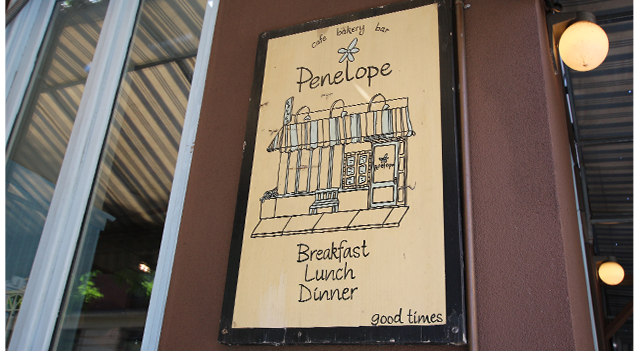 cafe bakery bar
Penelope
Breakfast
Lunch
Dinner
good times